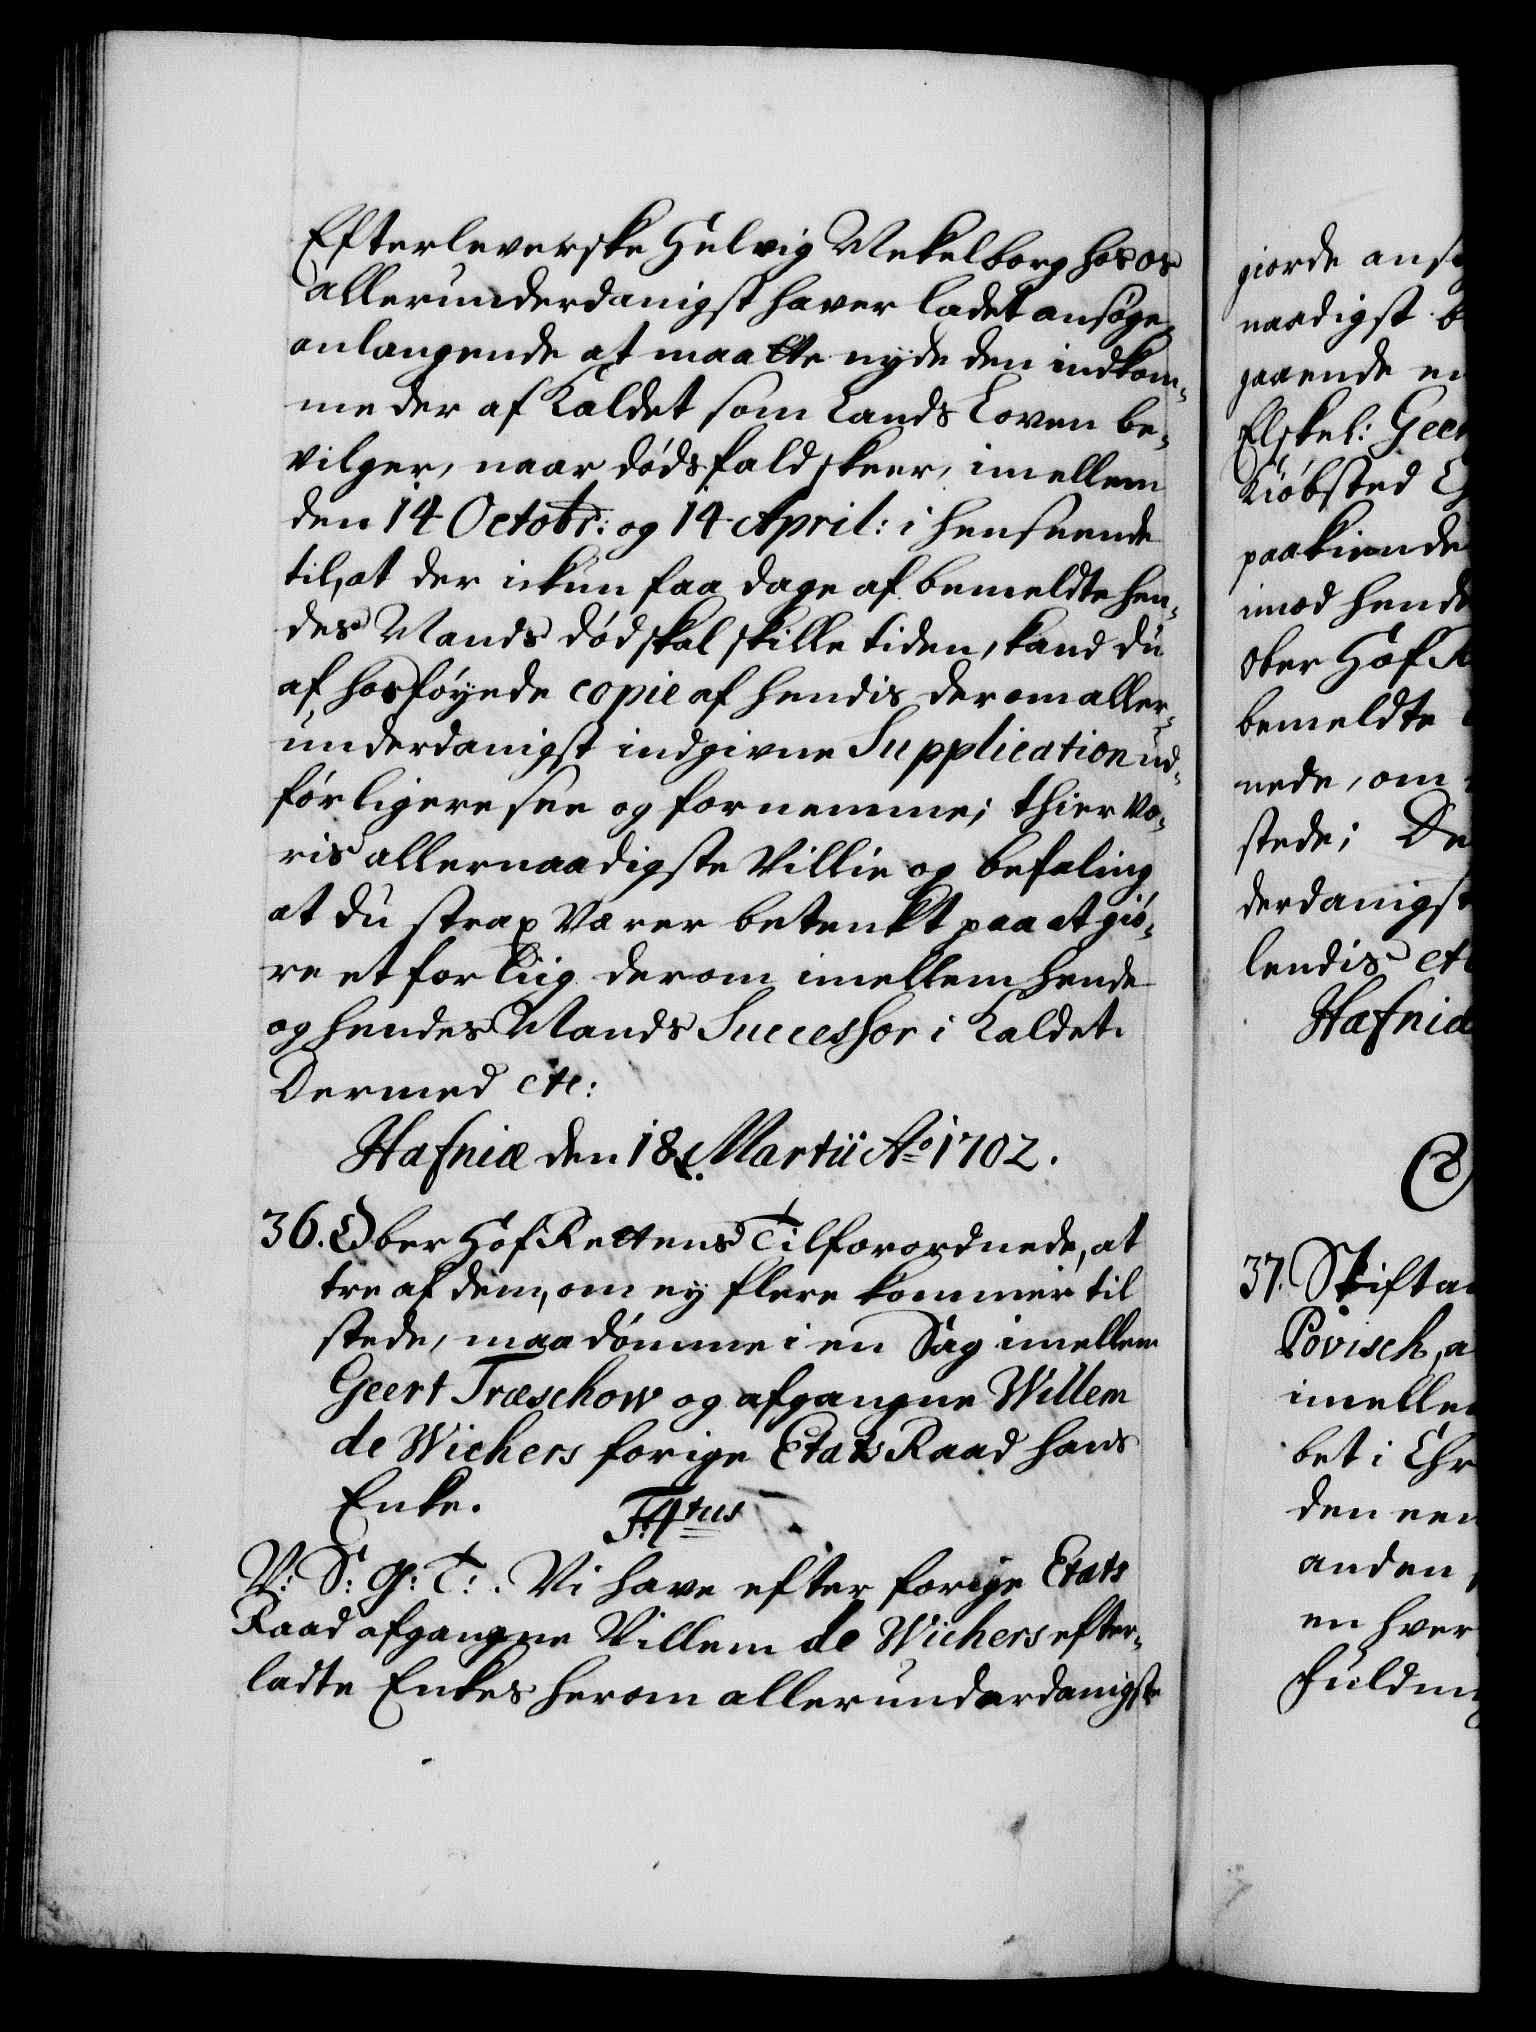 Efterleverske Helvig Mekelborg hos os
allerunderdanigst haver ladet ansøge,
anlangende at maatte nyde den indkom-
me der af Kaldet som Lands Loven be-
vilger, naar dødsfald skeer, imellem
den 14 Octobr: og 14 April: i henseende
til, at der ickun faa dage af bemeldte hen-
des Mands død skal skille tiden, kand du
af hosføyede copie af hendis derom aller-
underdanigst indgivne Supplication ud-
førligere see og fornemme; thi er Vo-
ris allernaadigste Villie og befaling
at du strax Værer betenkt paa at giö-
re et forliig derom imellem hende
og hendes Mands Successor i Kaldet.
Dermed etc:
Hafniæ den 18 Martii Ao 1702.
36. Ober Hof Rettens Tilforordnede, at
tre af dem, om ey flere kommer til
stede, maa dømme i en Sag imellem
Geert Træschow og afgangne Willem
de Wichers forige Etats Raad hans
Enke.
F: 4tus
V: S: G: T: . Vi have efter forige Etats
Raad afgangne Villem de Wichers efter-
ladte Enkes herom allerunderdanigste
giorde ansø
naadigst b
gaaende en
Elskel: Geer
Kiöbsted
paakiende
imod hende
Ober Hof R
bemeldte
nede, om
stede; De
derdanigst
lendis etc
Hafniæ
37. Skiftam
Povisch, a
imellem
bet i Chr
den een
anden
en hver
fuldm